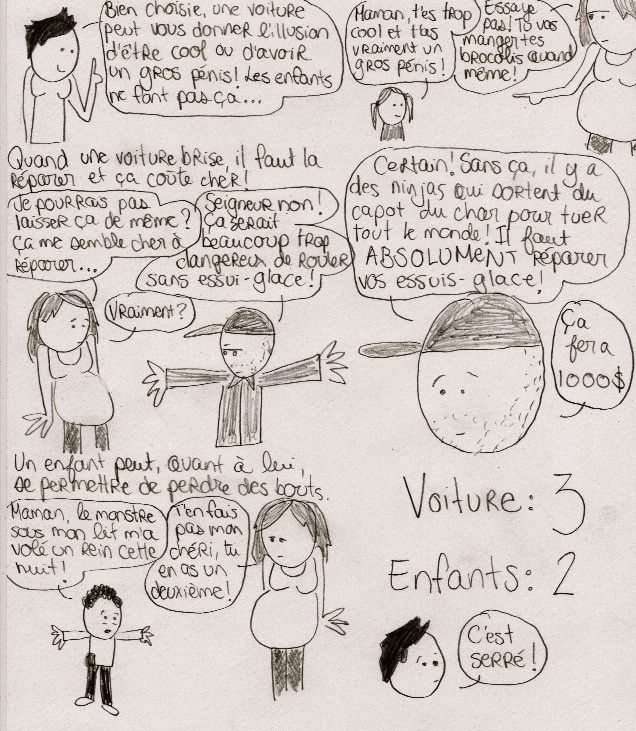 Bien choisie, une voiture
peut vous donner l'illusion
d'être cool ou d'avoir
un gros pénis! Les enfants
ne font pas ça...
Maman, t'es trop
cool et t'as
vraiment un
gros pénis!
Essaye
pas! Tu vas
manger tes
brocolis quand
même!
Quand une voiture brise, il faut la
réparer et ça coûte cher!
Je pourrais pas
laisser ça de même?
Ça me semble cher à
réparer...
Seigneur non!
Ça serait
beaucoup trop
dangereux de rouler
sans essui-glace!
Vraiment?
Certain! Sans ça, il y a
des ninjas qui sortent du
capot du char pour tuer
tout le monde! Il faut
ABSOLUMENT réparer
vos essuis-glace!
Ça
fera
1000$
Un enfant peut, quant à lui,
se permettre de perdre des bouts.
Maman, le monstre
sous mon lit m'a
volé un rein cette
nuit!
T'en fais
pas mon
chéri, tu
en as un
deuxième!
Voiture: 3
Enfants: 2
C'est
serré!